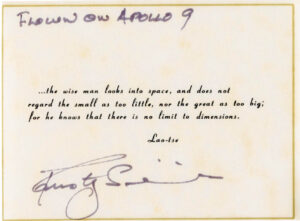 FLOWN ON APOLLO 9
...the wise man looks into space, and does not
regard the small as too little, nor the great as too big;
for he knows that there is no limit to dimensions.
Lao-tse